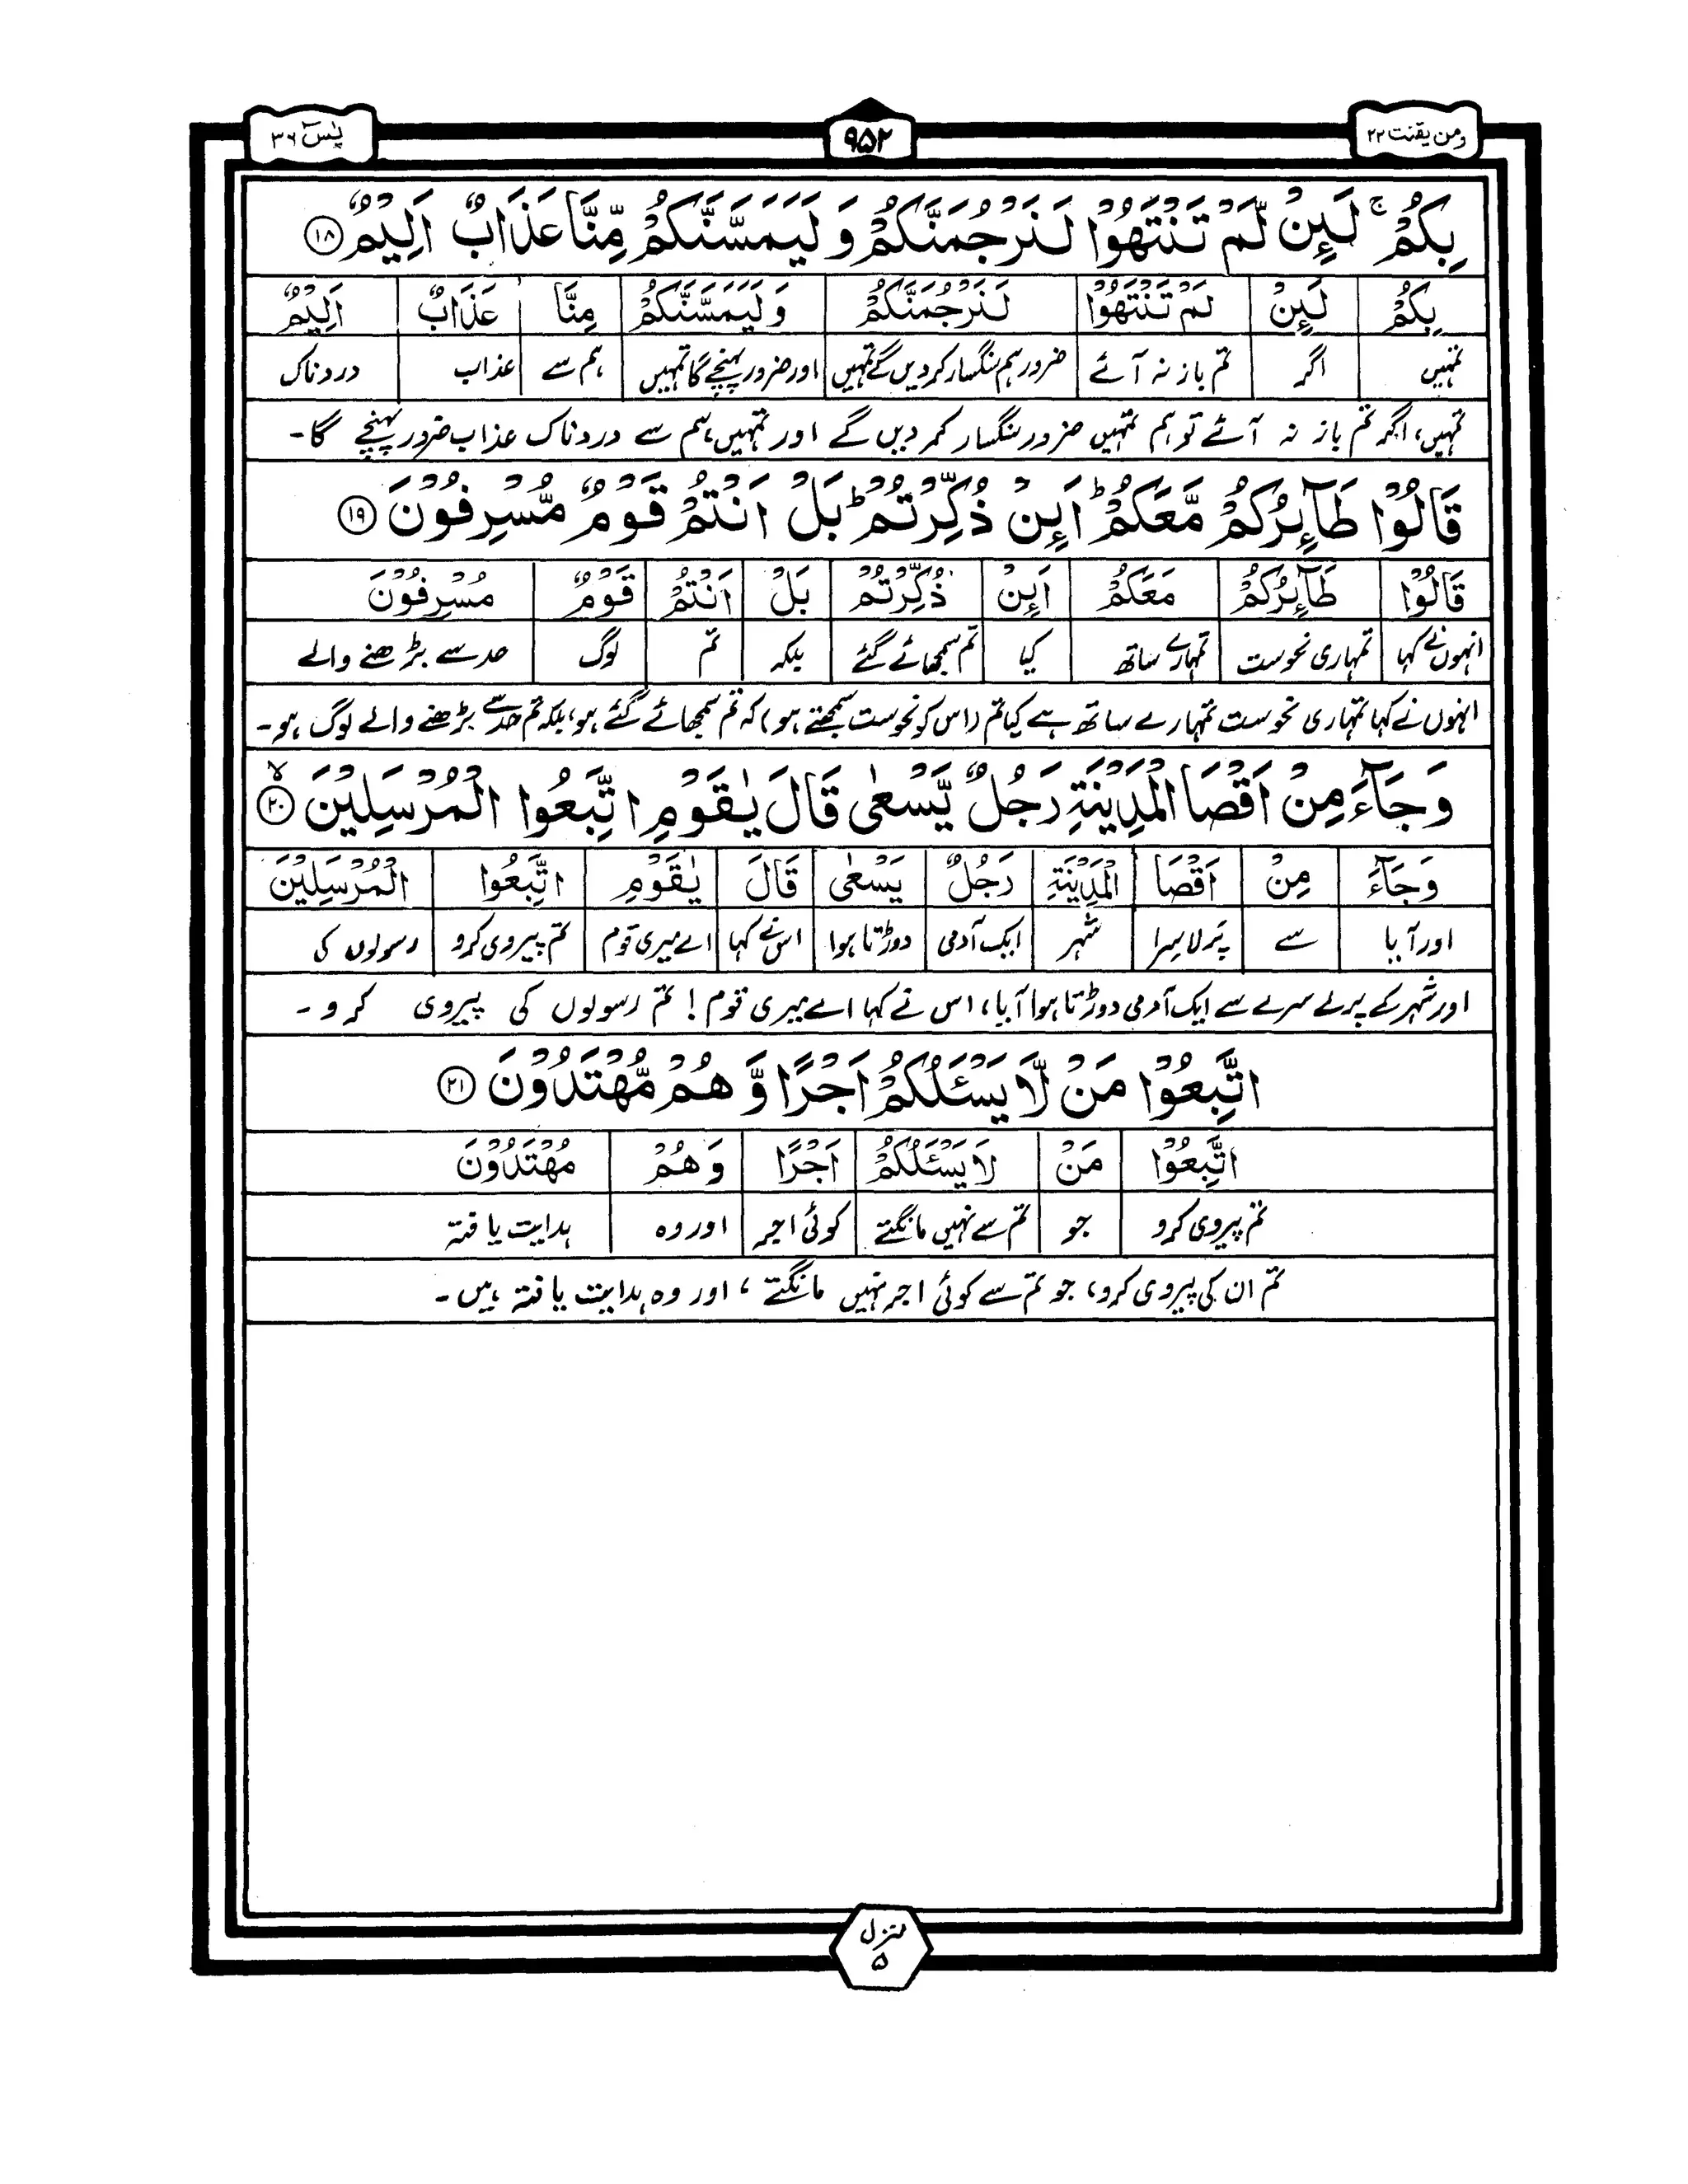 ومن یقنت ۲۲
۹۵۲
یٰسٓ ۳۶
بِكُمْ ۚ لَئِنْ لَّمْ تَنْتَهُوْا لَنَرْجُمَنَّكُمْ وَ لَيَمَسَّنَّكُمْ مِّنَّا عَذَابٌ اَلِيْمٌ ۱۸
بِكُمْ لَئِنْ لَمْ تَنْتَهُوْا لَنَرْجُمَنَّكُمْ وَلَيَمَسَّنَّكُمْ مِنَّا عَذَابٌ اَلِيْمٌ
تمہیں اگر تم باز نہ آئے ضرور ہم سنگسار کردیں گے تمہیں اور ضرور پہنچے گا تمہیں ہم سے عذاب دردناک
تمہیں، اگر تم باز نہ آئے تو ہم تمہیں ضرور سنگسار کر دیں گے اور تمہیں ہم سے دردناک عذاب ضرور پہنچے گا۔
قَالُوْا طَآئِرُكُمْ مَّعَكُمْ ؕ اَئِنْ ذُكِّرْتُمْ ؕ بَلْ اَنْتُمْ قَوْمٌ مُّسْرِفُوْنَ ۱۹
قَالُوْا طَآئِرُكُمْ مَعَكُمْ اَئِنْ ذُكِّرْتُمْ بَلْ اَنْتُمْ قَوْمٌ مُسْرِفُوْنَ
انہوں نے کہا تمہاری نحوست تمہارے ساتھ کیا تم سمجھائے گئے بلکہ تم لوگ حد سے بڑھنے والے
انہوں نے کہا تمہاری نحوست تمہارے ساتھ ہے کیا تم (اس کو نحوست سمجھتے ہو) کہ تم سمجھائے گئے ہو، بلکہ تم حد سے بڑھنے والے لوگ ہو۔
وَ جَآءَ مِنْ اَقْصَا الْمَدِيْنَةِ رَجُلٌ يَّسْعٰى قَالَ يٰقَوْمِ اتَّبِعُوا الْمُرْسَلِيْنَ ۙ ۲۰
وَجَآءَ مِنْ اَقْصَا الْمَدِيْنَةِ رَجُلٌ يَسْعٰى قَالَ يٰقَوْمِ اتَّبِعُوا الْمُرْسَلِيْنَ
اور آیا سے پرلا سرا شہر ایک آدمی دوڑتا ہوا اس نے کہا اے میری قوم تم پیروی کرو رسولوں کی
اور شہر کے پرلے سرے سے ایک آدمی دوڑتا ہوا آیا، اس نے کہا اے میری قوم! تم رسولوں کی پیروی کرو۔
اتَّبِعُوْا مَنْ لَّا يَسْئَلُكُمْ اَجْرًا وَّ هُمْ مُّهْتَدُوْنَ ۲۱
اتَّبِعُوْا مَنْ لَا يَسْئَلُكُمْ اَجْرًا وَهُمْ مُهْتَدُوْنَ
تم پیروی کرو جو تم سے نہیں مانگتے کوئی اجر اور وہ ہدایت یافتہ
تم ان کی پیروی کرو، جو تم سے کوئی اجر نہیں مانگتے، اور وہ ہدایت یافتہ ہیں۔
منزل
۵